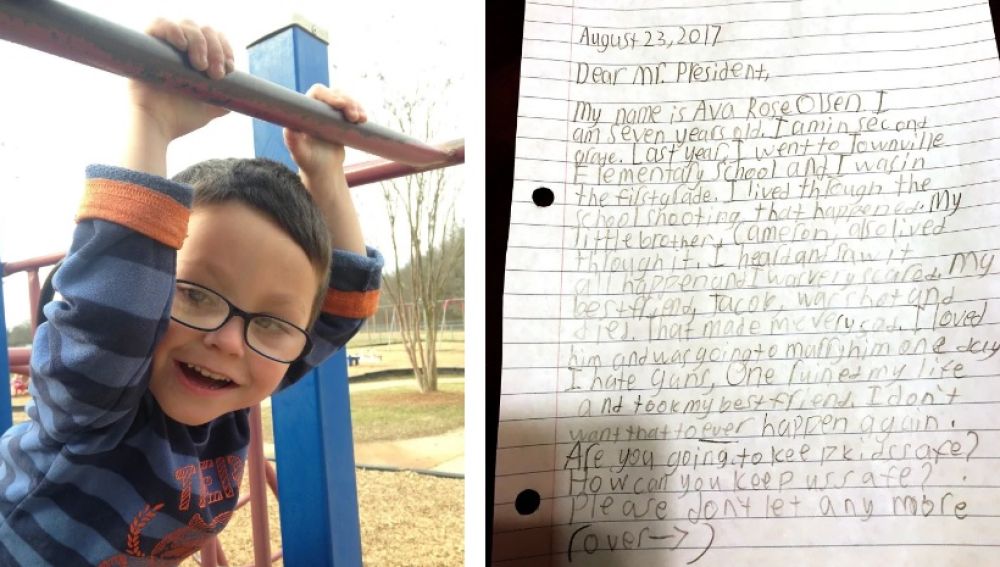 August 23, 2017
Dear Mr. President,
My name is Ava Rose Olsen. I
am seven years old. I am in second
grade. Last year, I went to Townville
Elementary School and I was in
the first grade. I lived through the
school shooting that happened. My
little brother, Cameron, also lived
through it. I heard and saw it
all happen and I was very scared. My
best friend, Jacob, was shot and
died. That made me very sad. I loved
him and was going to marry him one day
I hate guns, One ruined my life
and took my best friend. I don't
want that to ever happen again.
Are you going to keep kids safe?
How can you keep us safe?
Please dont let any more
(over→)